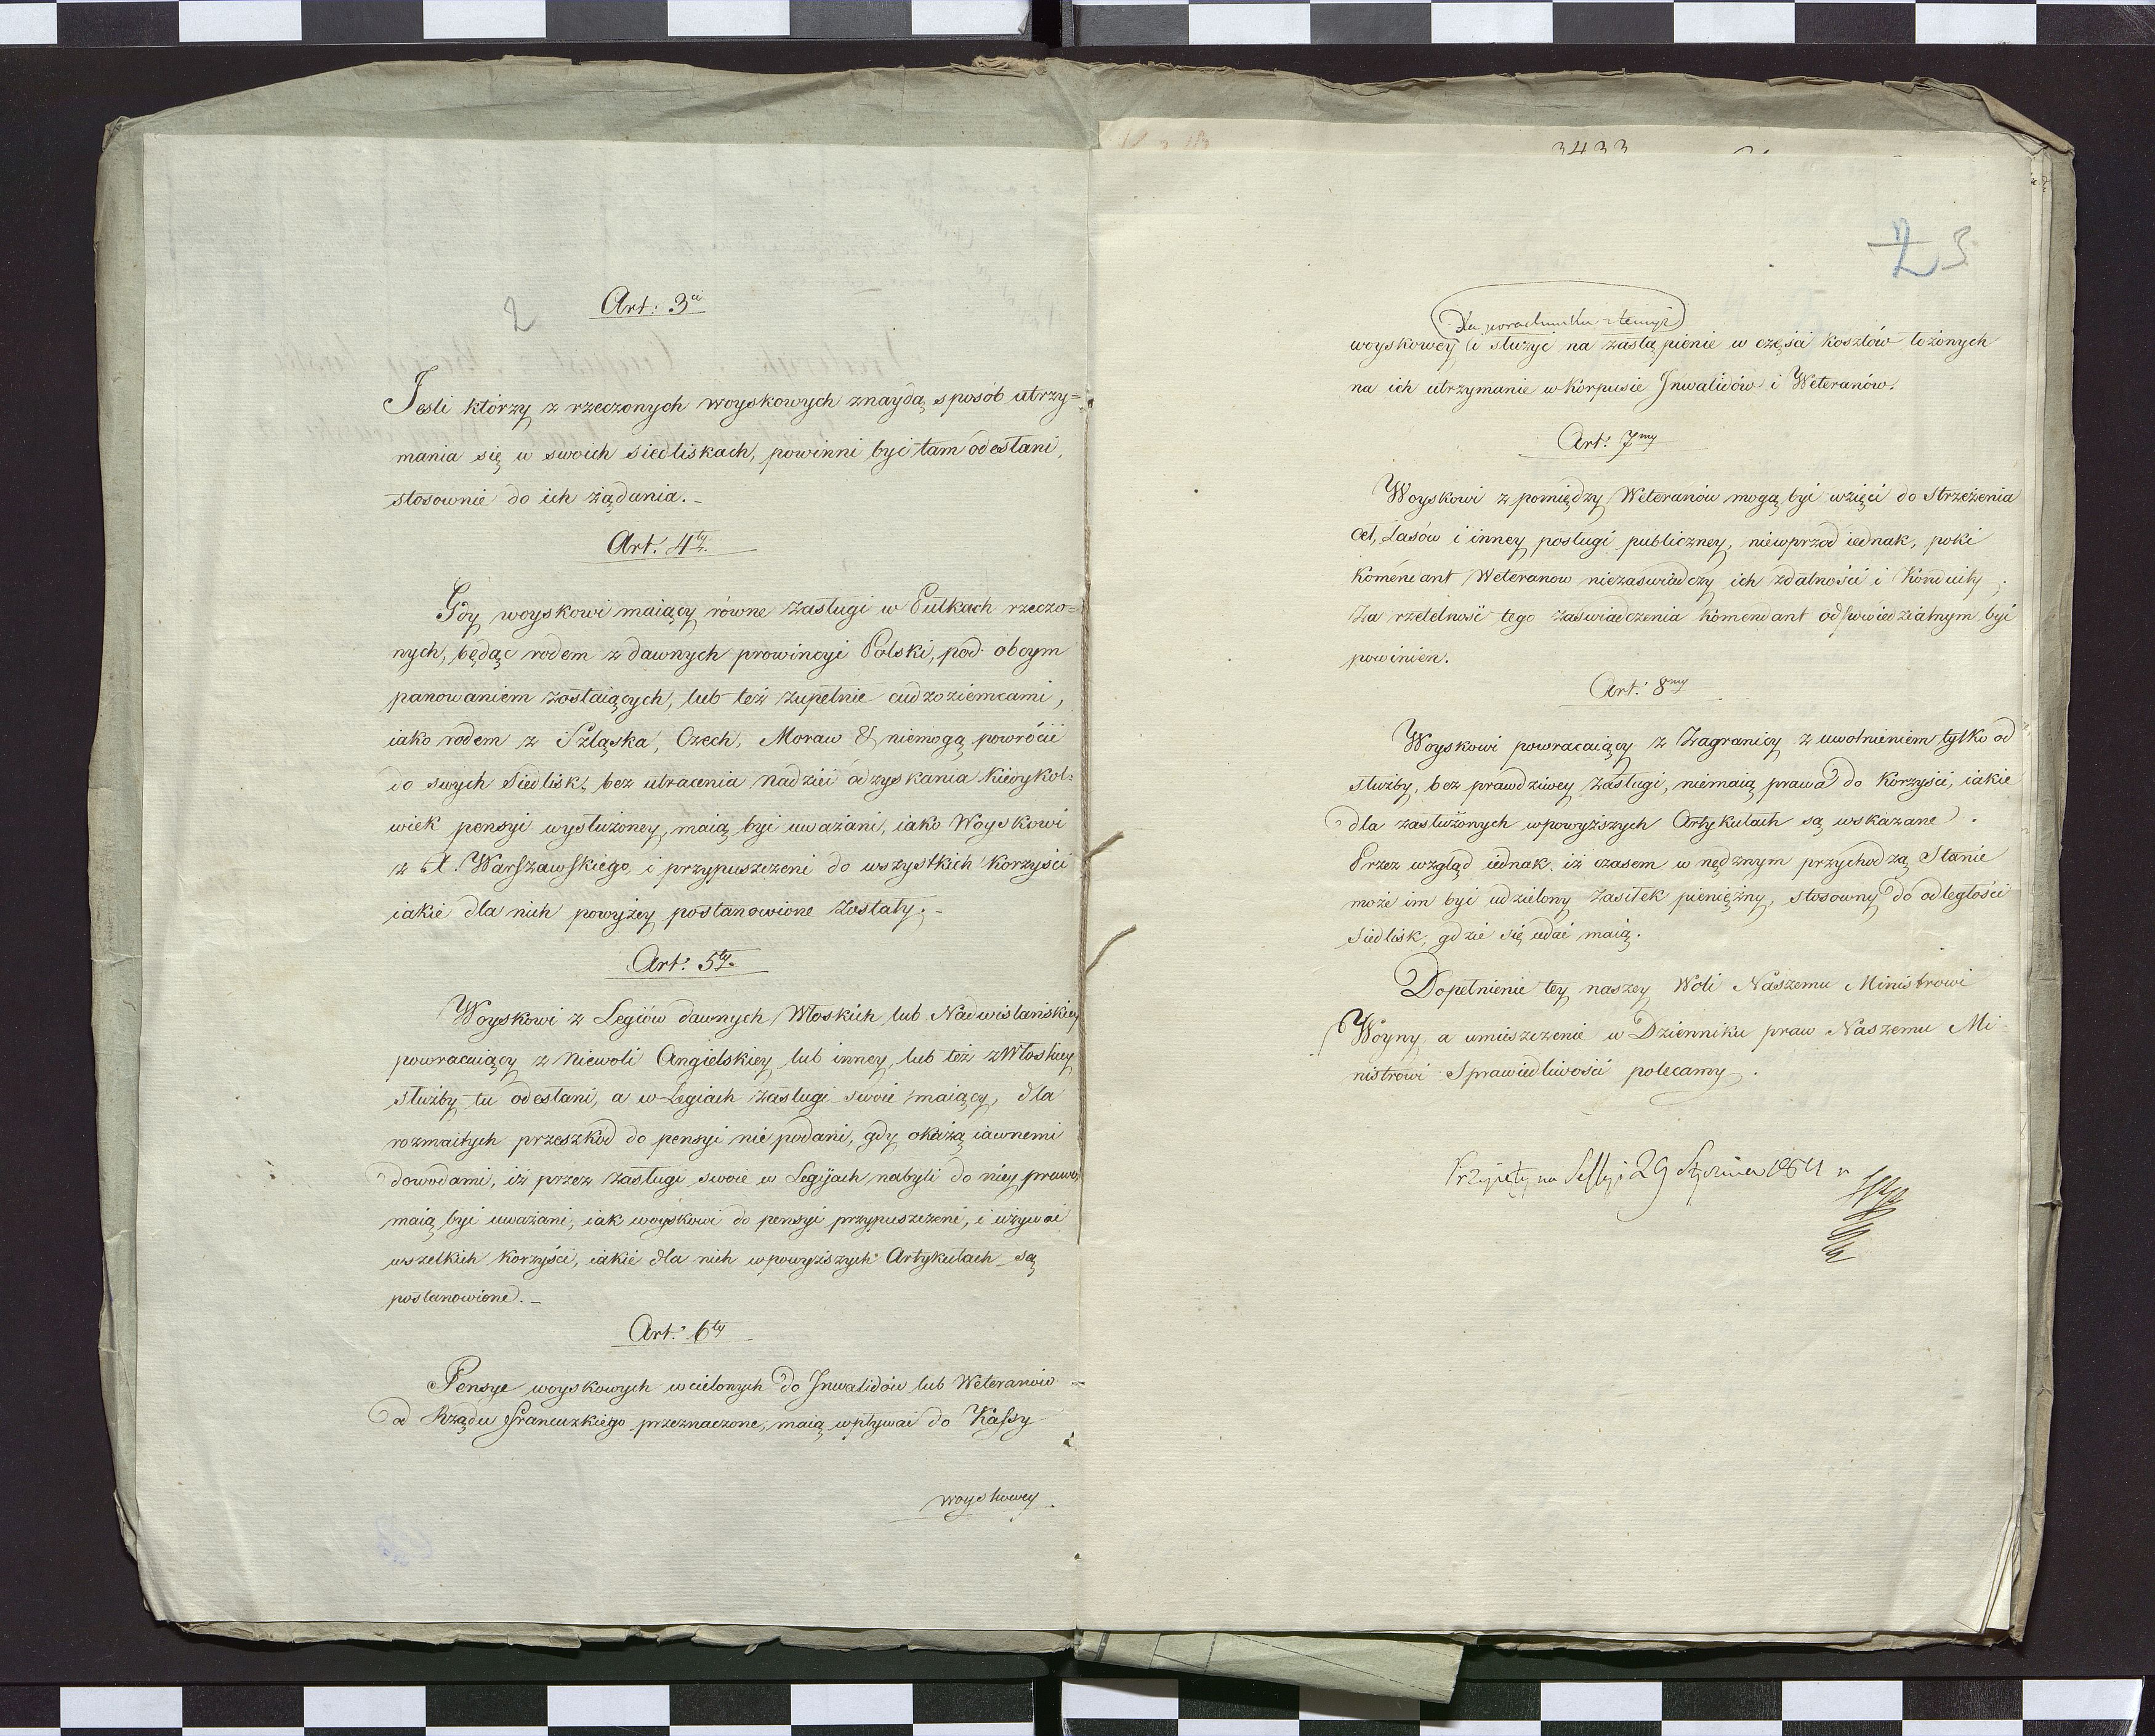 2
Art: 3ci
Jesli którzy z rzeczonych woyskowych znaydą sposób utrzy=
mania się w swoich siedliskach, powinni być tam odesłani,
stosownie do ich żądania.-
Art: 4ty.
Gdy woyskowi maiący równe zasługi w Pułkach rzeczo=
nych, będąc rodem z dawnych prowincyi Polski, pod obcym
panowaniem zostaiących, lub też zupełnie cudzoziemcami,
iako rodem z Szląska, Czech, Moraw & niemogą powrócić
do swych Siedlisk, bez utracenia nadziei odzyskania kiedykol=
wiek pensyi wysłużoney, maią być uważani, iako Woyskowi
z X. Warszawskiego, i przypuszczeni do wszystkich korzyści
iakie dla nich powyżey postanowione zostały.-
Art: 5ty.
Woyskowi z Legiów dawnych Włoskich lub Nadwislańskiey
powracaiący z Niewoli Angielskiey lub inney, lub też z Włoskiey
służby tu odesłani, a w Legiach zasługi swoie maiący, dla
rozmaitych przeszkód do pensyi nie podani, gdy okażą iawnemi
dowodami, iż przez zasługi swoie w Legijach nabyli do niey prawo,
maią być uważani, iak woyskowi do pensyi przypuszczeni, i używać
wszelkich korzyści, iakie dla nich w powyższych Artykułach są
postanowione.-
Art: 6ty
Pensye woyskowych wcielonych do Inwalidów lub Weteranów
od Rządu Francuzkiego przeznaczone, maią wpływać do Kassy
woyskowey.
3433
2 3
Dla porachunku z temiż
woyskowey i służyć na zastąpienie w części kosztów łożonych
na ich utrzymanie w Korpusie Inwalidów i Weteranów.
Art: 7my
Woyskowi z pomiędzy Weteranów mogą być wzięci do strzeżenia
Ceł, Lasów i inney posługi publiczney, niewprzod iednak, poki
Komendant Weteranow niezaswiadczy ich zdatności i Konduity;
Za rzetelność tego zaswiadczenia Komendant odpowiedzialnym być
powinien.
Art: 8my
Woyskowi powracaiący z Zagranicy z uwolnieniem tylko od
służby, bez prawdziwey zasługi, niemaią prawa do korzyści, iakie
dla zasłużonych w powyższych Artykułach są wskazane.
Przez wzgląd iednak, iż czasem w nędznym przychodzą Stanie
może im być udzielony zasiłek pieniężny, stosowny do odległości
Siedlisk, gdzie się udać maią.
Dopełnienie tey naszey Woli Naszemu Ministrowi
Woyny, a umieszczenie w Dzienniku praw Naszemu Mi-
nistrowi Sprawiedliwości polecamy.
Przyięty na Sessyi 29 Stycznia 1811 r